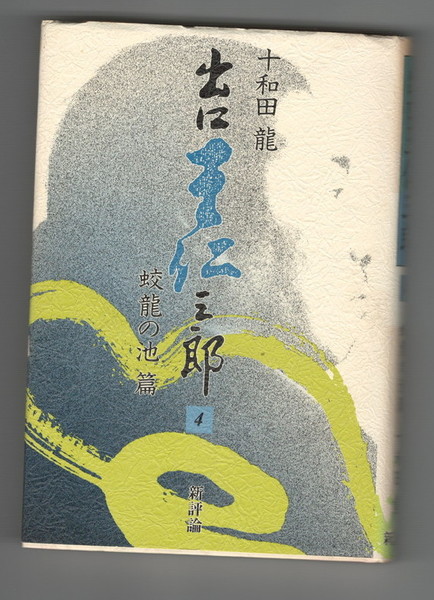 十和田 龍
出口王仁三郎
蛟龍の池 篇
4
新評論